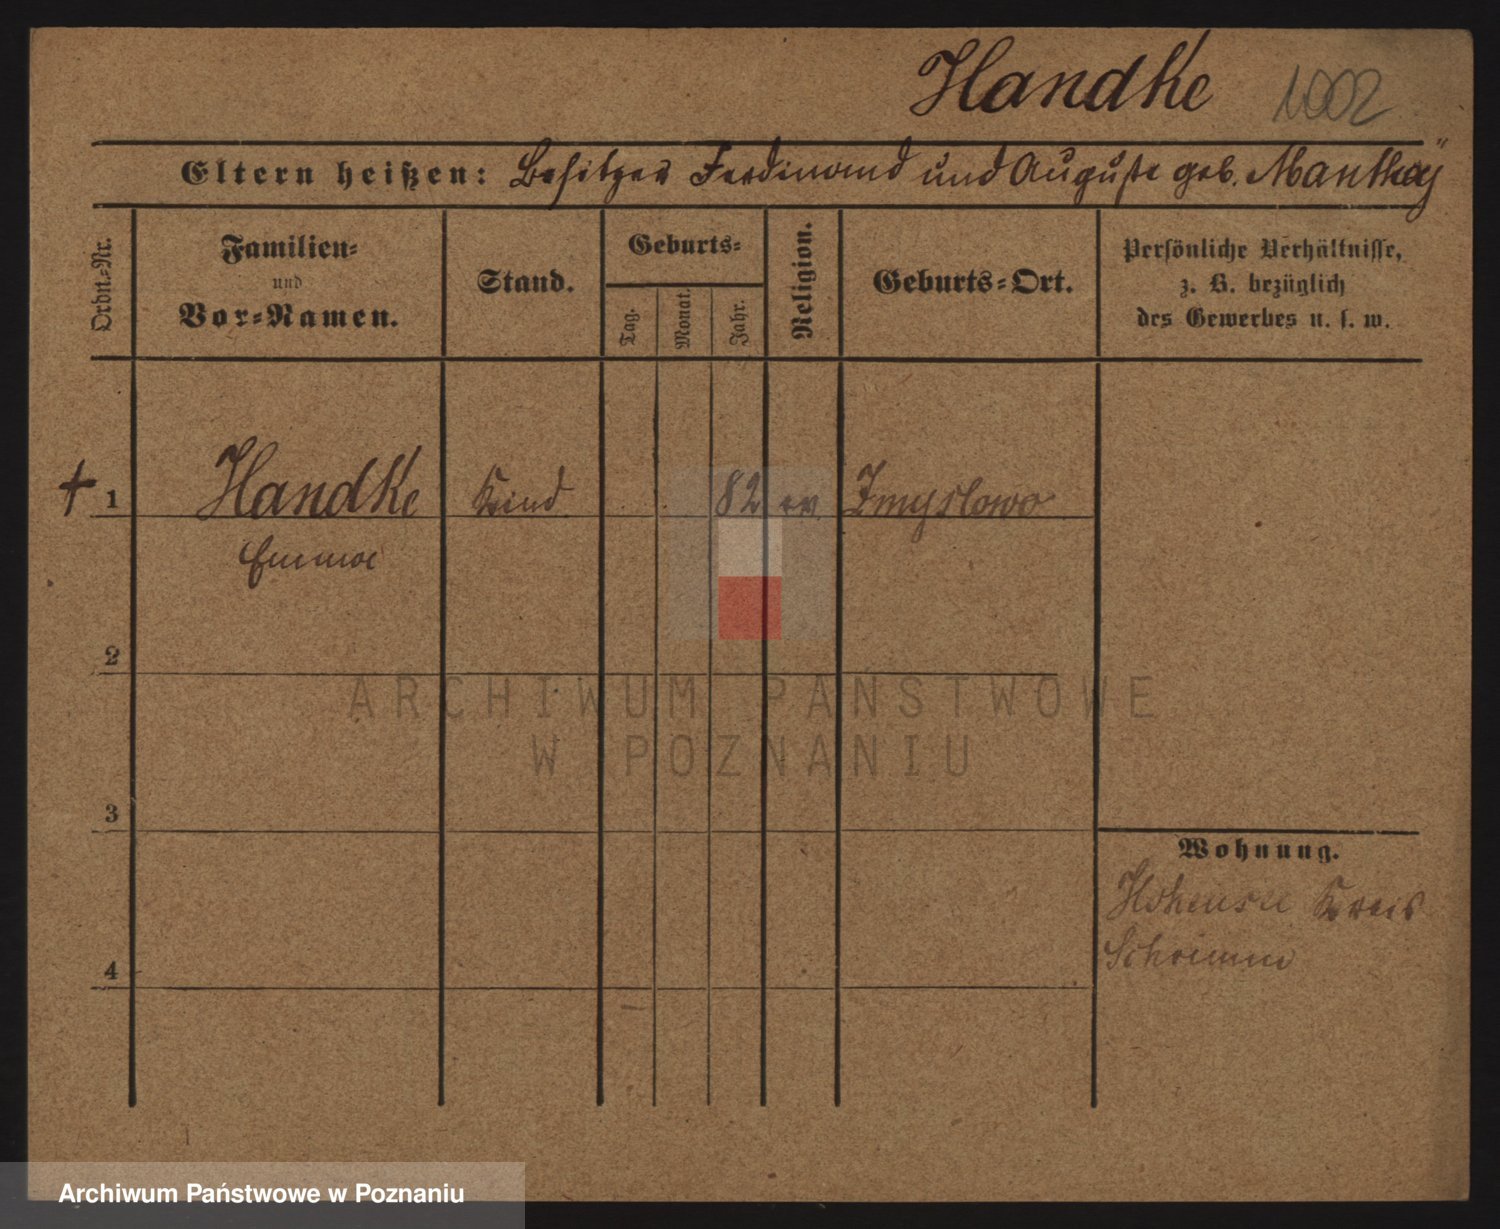 Handke 1002
Eltern heißen: Besitzer Ferdinand und Auguste geb. Manthey
Ordn.-Nr.
Familien-
und
Vor-Namen.
Stand.
Geburts-
Tag.
Monat.
Jahr.
Religion.
Geburts-Ort.
Persönliche Verhältnisse,
z. B. bezüglich
des Gewerbes u. s. w.
+ 1 Handke Kind 82 ev. Zmyslowo
Emma
2
ARCHIWUM PAŃSTWOWE
W POZNANIU
3
Wohnung.
Hohensee Kreis
Schrimm
4
Archiwum Państwowe w Poznaniu